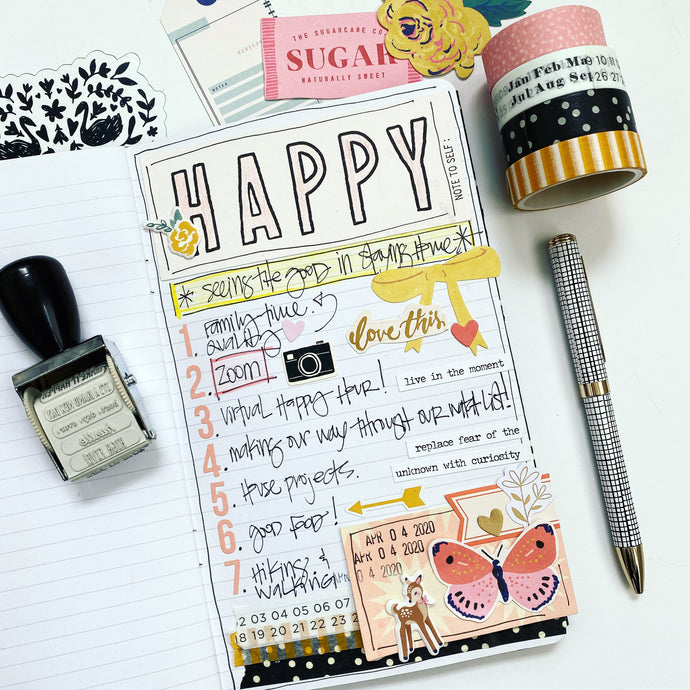 THE SUGARCANE CO
SUGAR
NATURALLY SWEET
Jan Feb Ma
Jul Aug Sep
10 11
26 27
HAPPY
NOTE TO SELF:
* seeing the good in staying home *
1. Family time.
quality
love this
2. ZOOM
live in the moment
3. virtual Happy Hour!
4. making our way through our watch list!
replace fear of the
unknown with curiosity
5. House projects.
6. good food!
APR 04 2020
APR 04 2020
04 2020
7. Hiking &
walking
2 03 04 05 06 07
18 19 20 21